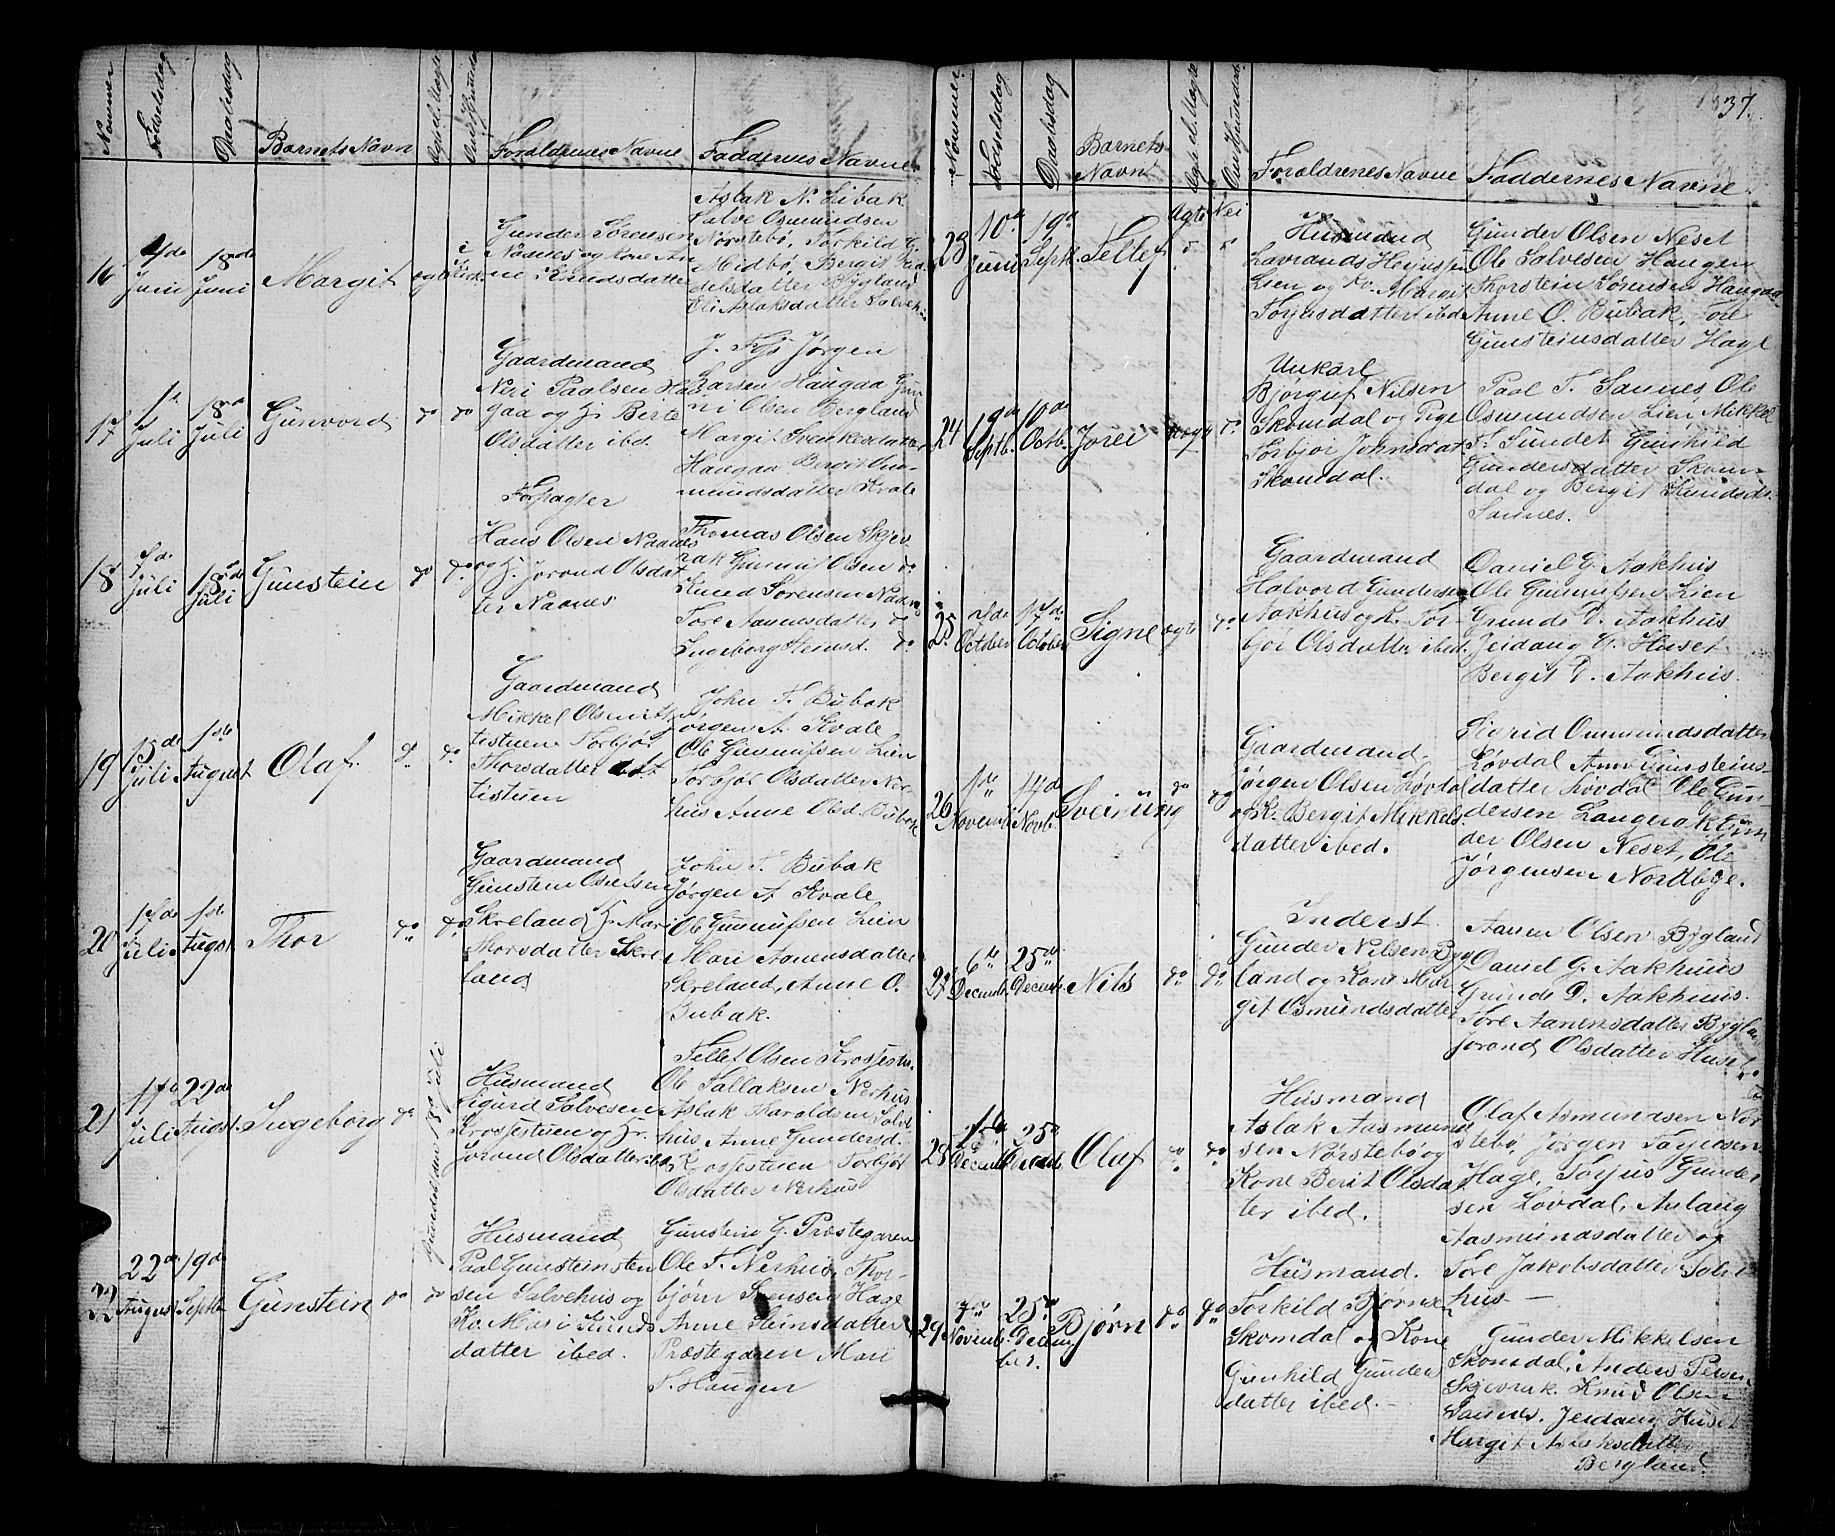 Nommer Fødselsdag Daabsdag Barnets Navn Forældrenes Navne Faddernes Navne
16 4de Juni 18de Juni Margit
Gunder Sørensen
Knudsdatter
Aslak N. Libak
Salve Osmundsen
Nørstebø, Torkild G.
Midbø, Bergit
delsdatter Bygland
Eli Aslaksdatter
17 1ste Juli 18de Juli Gunvord do do
Gaardmand
Neri Paalsen Hau
gaa og H. Berte
Olsdatter ibd.
J. Fofs Jørgen
Larsen Haugaa Gun
ni Olsen Bergland
Margit Svenkesdatter
Haugaa Bergit Om
mundsdatter Kvale
18 7de Juli 18de Juli Gunstein do do
Forpagter
Hans Olsen Naanes
og H. Jorand Olsdat
ter Naanes
Thomas Olsen Skjev
rak Gunnil Olsen do
Knud Sørensen Naanes
Tore Aanensdatter do
Ingeborg Steinsd. do
19 15de Juli 1ste August Olaf do do
Gaardmand
Mikkel Olsen
tistuen Torbjør
Thorsdatter
tistuen
John T. Bubak
Jørgen A. Kvale
Ole Gunnufsen Lien
Torbjør Olsdatter Ner
hus Anne Olsd. Bubak
20 17de Juli 1ste August Thor do do
Gaardmand
Gunstein
Skreland H. Mari
Thorsdatter Skre
land
John T. Bubak
Jørgen A. Kvale
Ole Gunnufsen Lien
Mari Aanensdatter
Skreland, Anne O.
Bubak.
21 Juli 22de August. Ingeborg do 18de Juli
Husmand
Sigurd Salvesen
Krossestuen og H.
Jorand Olsdatter ibd.
Tellef Olsen Krossestu.
Ole Tallaksen Nerhus
Aslak Haroldsen Salve
hus Anne Gundersd.
Krossestuen Torbjør
Olsdatter Nerhus
22 22de August 19de Septbr. Gunstein do do
Husmand
Paal Gunsteinsten
sen Salvehus og
Ko. Mari Knuds
datter ibed.
Gunstein G. Præstegaren
Ole T. Nerhus, Thor-
bjørn Svensen Hage
Anne Steinsdatter
Præstegaren Mari
T. Haugen
37.
Nommer Fødselsdag Daabsdag Barnets Navn Forældrenes Navne Faddernes Navne
23 10de Juni 19de Septb. Tellef Ægte Nei
Husmand
Lavrands Heijussen
Lien og Ko. Margit
Torjusdatter ibed
Gunder Olsen Neset
Ole Salvesen Haugen
Thorstein Sørensen Haugaa
Anne O. Bubak, Tore
Gunsteinsdatter Hage
24 19de Septb. 10de Octb. Jorei do
Unkarl
Bjørguf Nilsen
Skomdal og Pige
Torbjør Johnsdat.
Skomdal.
Paal T. Sannes, Ole
Osmundsen Lien Mikkel
T. Sundet Gunhild
Gundersdatter Skom-
dal og Bergit Knudsdt.
Sannes.
25 October 17de October Signe ægte do
Gaardmand
Halvord Gundersen
Aakhus og K. Tor-
bjør Olsdatter ibed.
Daniel G. Aakhus
Ole Gunnufsen Lien
Grunde D. Aakhus
Jeidang G. Huset
Bergit D. Aakhus.
26 1ste Novemb. 14de Novb. Sveinung do do
Gaardmand.
Jørgen Olsen Løvdal
og K. Bergit Mikkels
datter ibed.
Sigrid Ommundsdatter
Løvdal Anne Gunsteins-
datter Løvdal Ole Gun-
dersen Langerak Gun
der Olsen Neset, Ole
Jørgensen Nordbge.
27 6te Decemb. 25de Decemb. Nils do do
Inderst.
Gunder Nilsen Byg
land og Kone Mar
git Osmundsdatter
Aanen Olsen Bygland
Daniel G. Aakhuus
Grunde D. Aakhuus.
Tore Aanensdatter Bygland
Jorand Olsdatter Huset.
28 Decemb 25de Decemb Olaf do do
Husmand
Aslak Aasmund
sen Nørstebø og
Kone Berit Olsdat
ter ibed.
Olaf Asmundsen Nør
stebø, Jørgen
Hage, Torjus Gunder
sen Løvdal, Aslaug
Aasmundsdatter og
Tore Jakobsdatter Salve
hus –
29 7de Novemb. 25de Decem ber. Bjørn do do
Husmand.
Torkild Bjørnsen
Skomdal og Kone
Gunhild Gunders
datter ibed. –
Gunder Mikkelsen
Skomdal, Anders Persen
Skjevrak. Knud Olsen
Sannes. Jeidang Huset
Margit Aslaksdatter
Bergland.